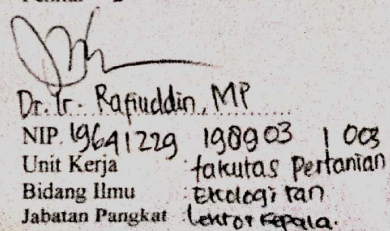 Dr. Ir. Rafiuddin, MP
NIP. 19641229 198903 1 003
Unit Kerja : fakutas Pertanian
Bidang Ilmu : Ekologi Tan
Jabatan Pangkat : Lektor Kepala.